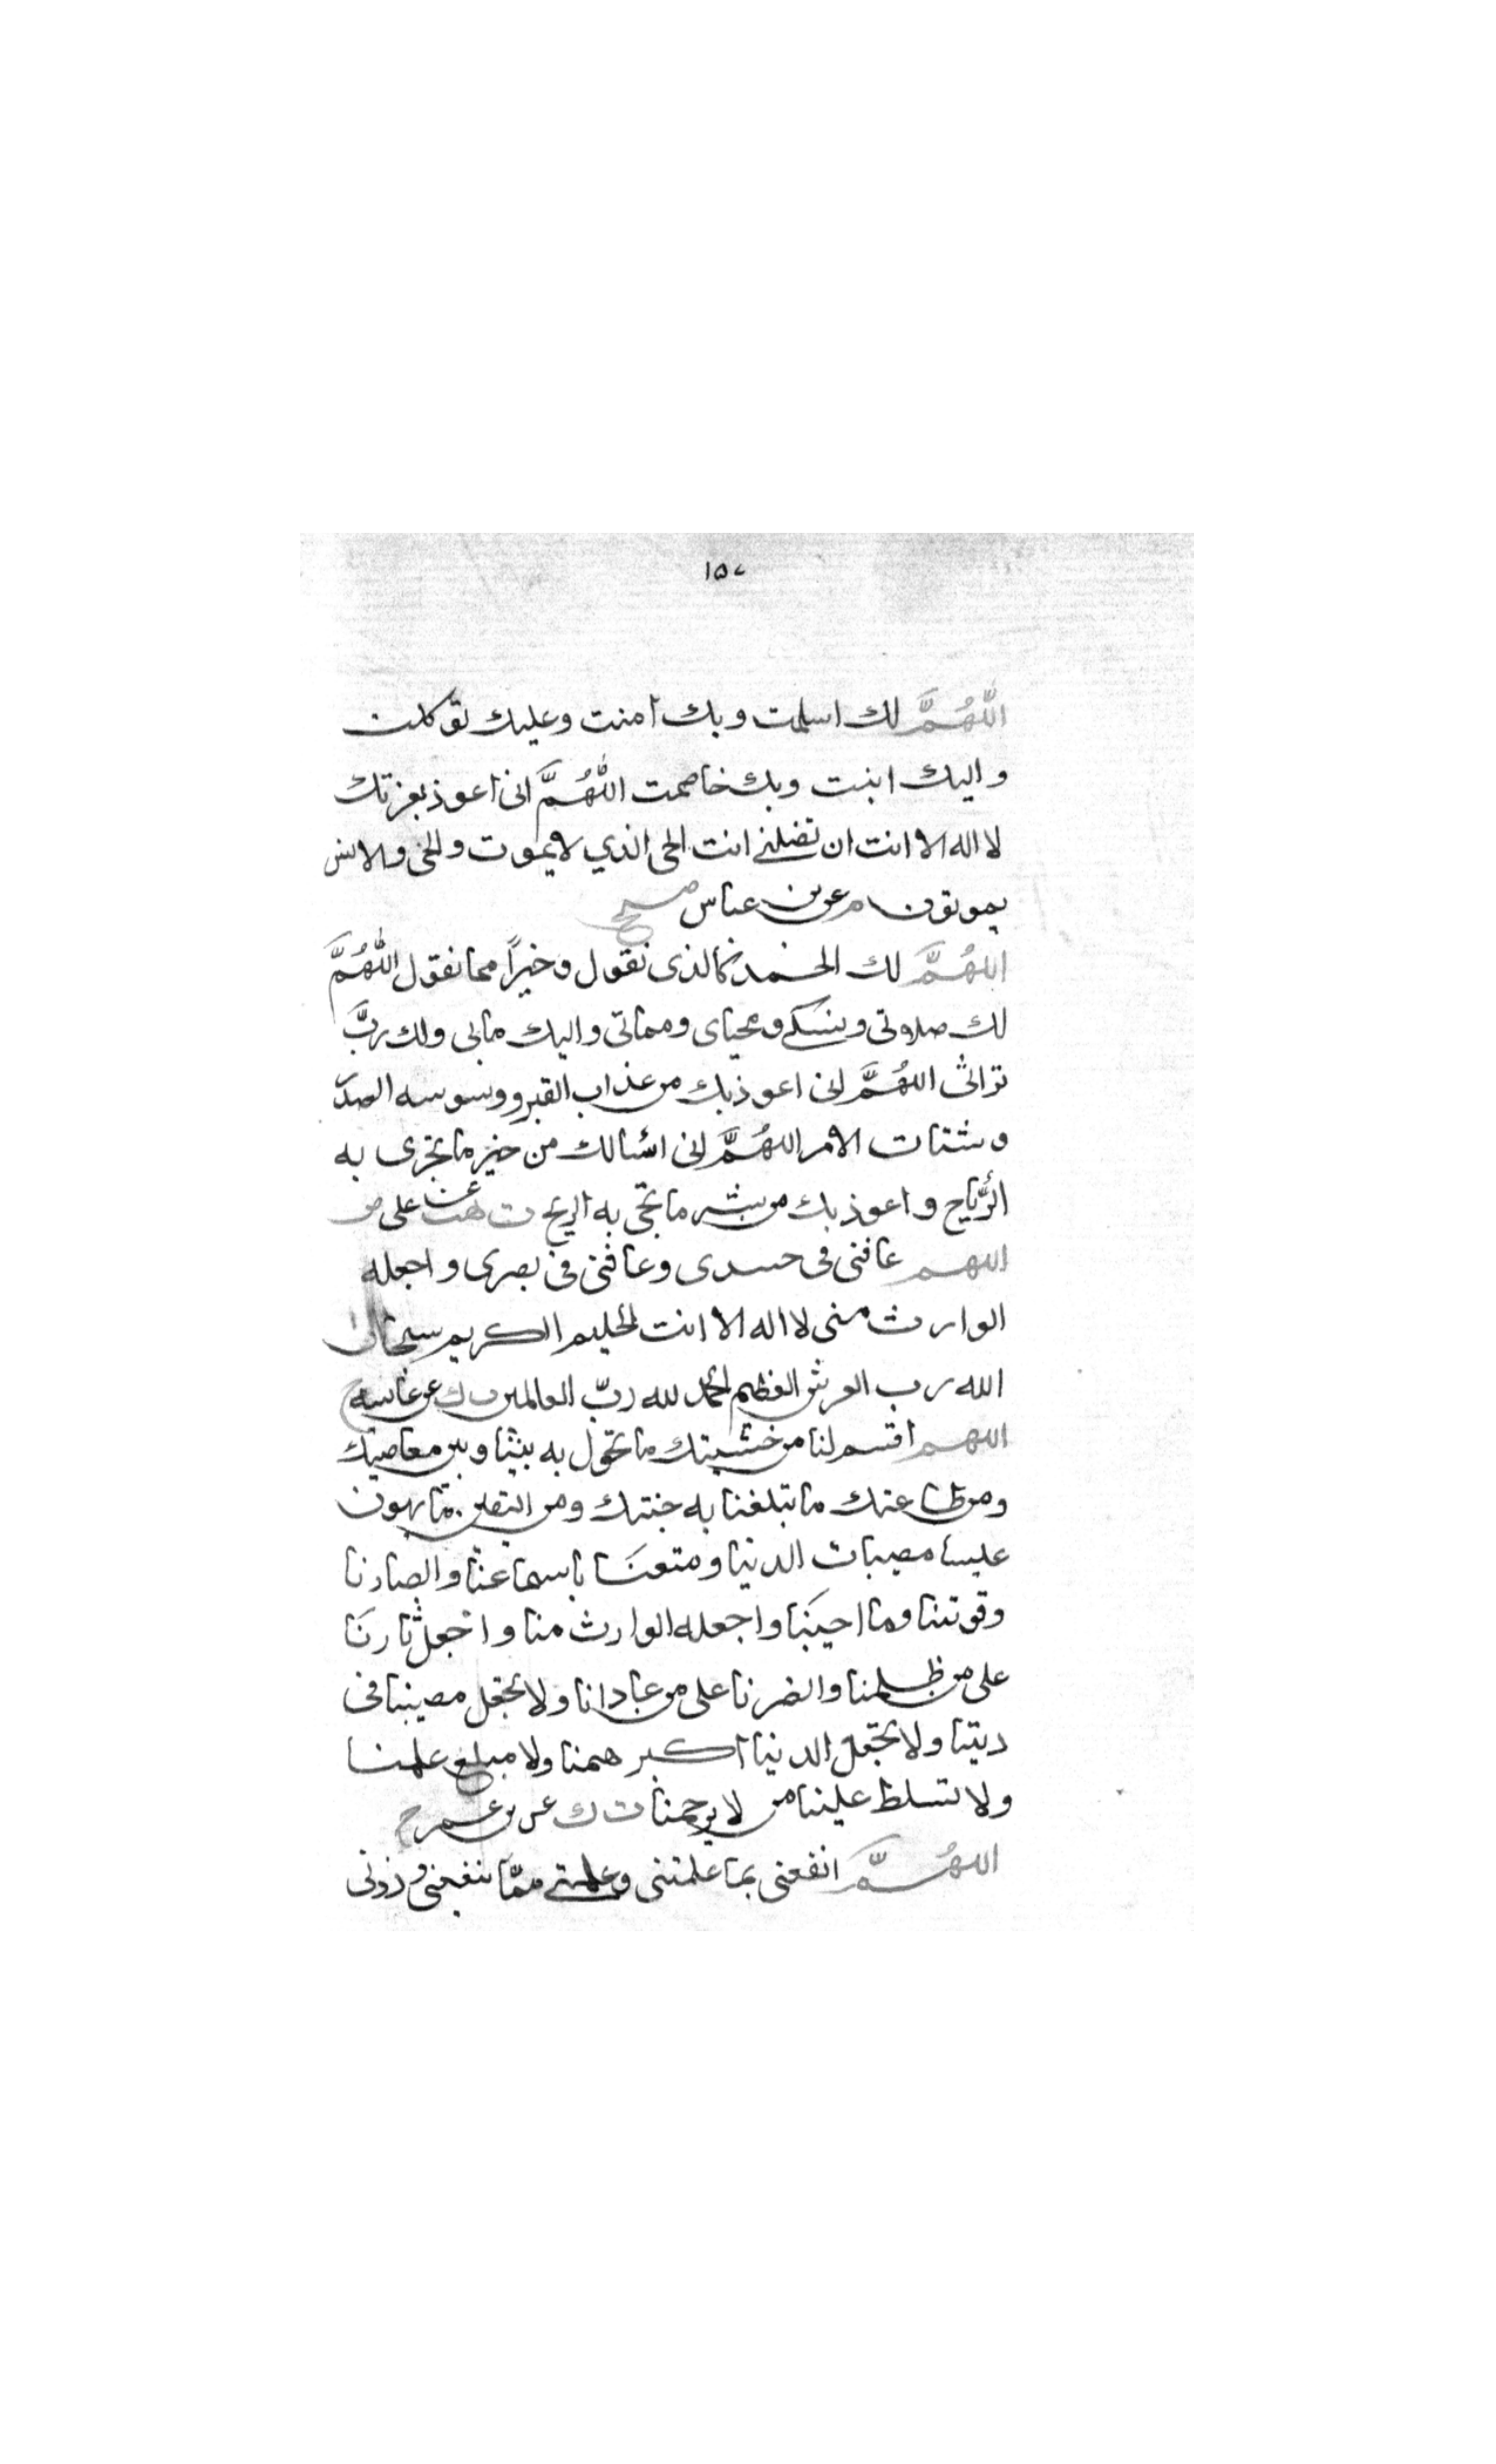 ١٥٧
اللّٰهُمَّ لك اسلمت وبك امنت وعليك توكلت
واليك انبت وبك خاصمت اللّٰهُمَّ انى اعوذ بعزتك
لا اله الا انت ان تضلنى انت الحى الذي لا يموت والجن والانس
يموتون م عن بن عباس صح
اللهُمَّ لك الحمد كالذى نقول وخيراً مما نقول اللّٰهُمَّ
لك صلاوتى ونسكى ومحياى ومماتى واليك مابى ولك ربَّ
تراثى اللهُمَّ انى اعوذ بك من عذاب القبر ووسوسه الصدر
وشتات الامر اللهُمَّ انى اسالك من خير ما تجرى به
الرّياح واعوذ بك من شر ما تجى به الريح ت هب عن على
اللهم عافنى فى جسدى وعافنى فى بصرى واجعله
الوارث منى لا اله الا انت الحليم الكريم سبحان
الله رب العرش العظيم الحمد لله ربّ العالمين ت ك عن عايشه
اللهم اقسم لنا من خشيتك ما تحول به بيننا وبين معاصيك
ومن طاعتك ما تبلغنا به جنتك ومن اليقين ما يهون
علينا مصيبات الدنيا ومتعنا باسماعنا وابصارنا
وقوتنا وما احييتنا واجعله الوارث منا واجعل ثارنا
على من ظلمنا وانصرنا على من عادانا ولا تجعل مصيبتنا فى
ديننا ولا تجعل الدنيا اكبر همنا ولا مبلغ علمنا
ولا تسلط علينا من لا يرحمنا ت ك عن بن عمر ح
اللهُمَّ انفعنى بما علمتنى وعلمنى ممّا ينفعنى وزدنى